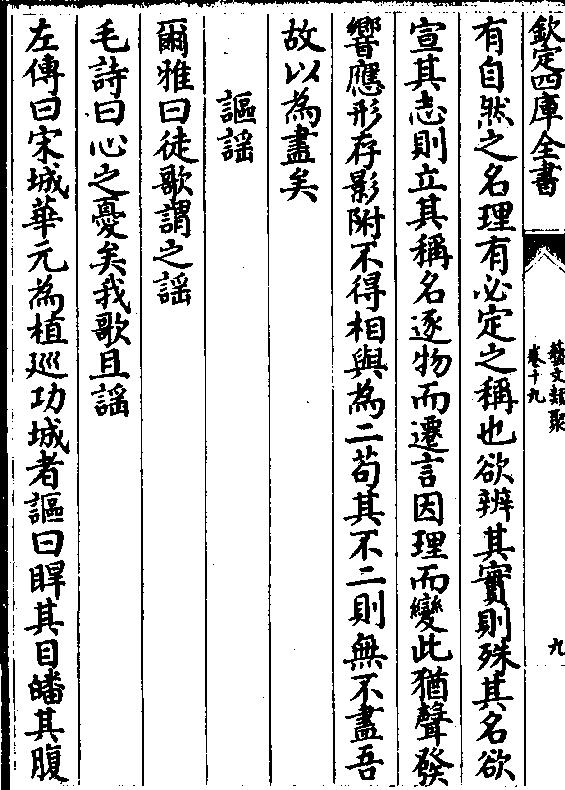 欽定四庫全書
藝文類聚
卷十九
九
有自然之名理有必定之稱也欲辨其實則殊其名欲
宣其志則立其稱名逐物而遷言因理而變此猶聲發
響應形存影附不得相與為二苟其不二則無不盡吾
故以為盡矣
謳謡
爾雅曰徒歌謂之謡
毛詩曰心之憂矣我歌且謡
左傳曰宋城華元為植廵功城者謳曰睅其目皤其腹